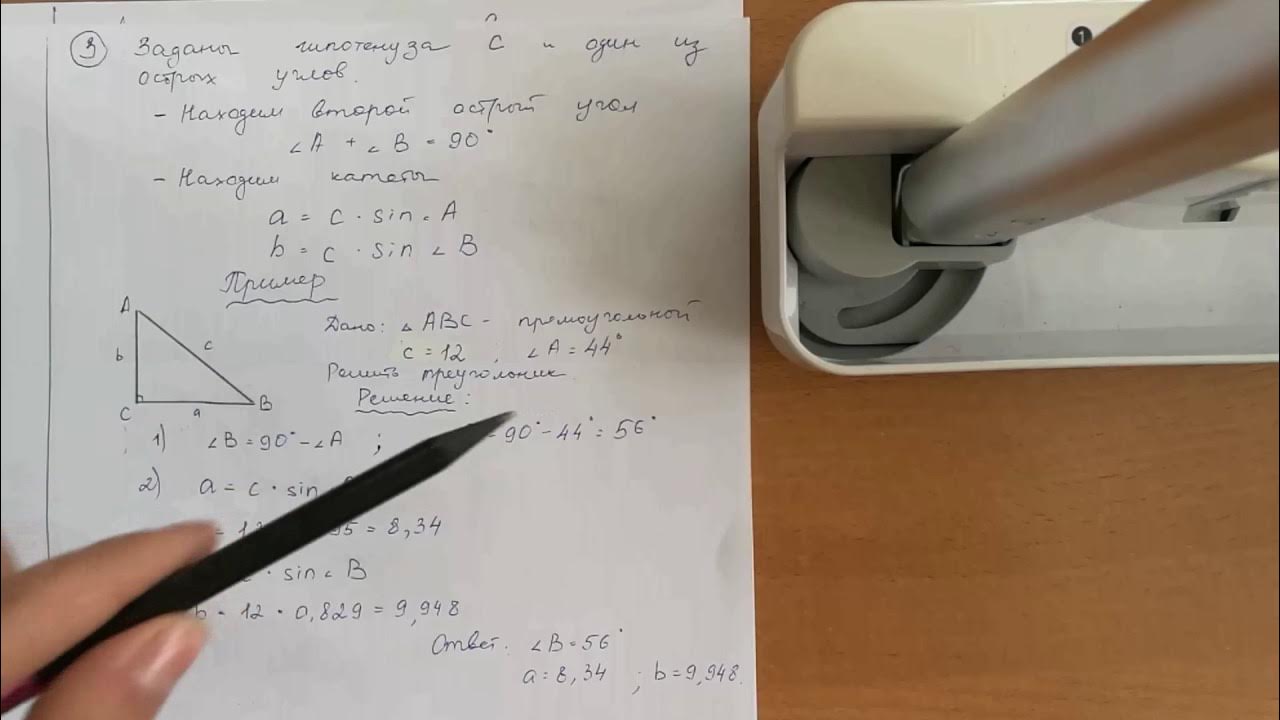 ③ Заданы гипотенуза c и один из
острых углов.
- Находим второй острый угол
∠A + ∠B = 90°
- Находим катеты
a = c · sin ∠A
b = c · sin ∠B
Пример
A
b c
C a B
Дано: △ABC - прямоугольной
c = 12, ∠A = 44°
Решить треугольник
Решение:
1) ∠B = 90° - ∠A ; = 90° - 44° = 56°
2) a = c · sin
= 8,34
· sin ∠B
b = 12 · 0,829 = 9,948
Ответ. ∠B = 56°
a = 8,34 ; b = 9,948.
1